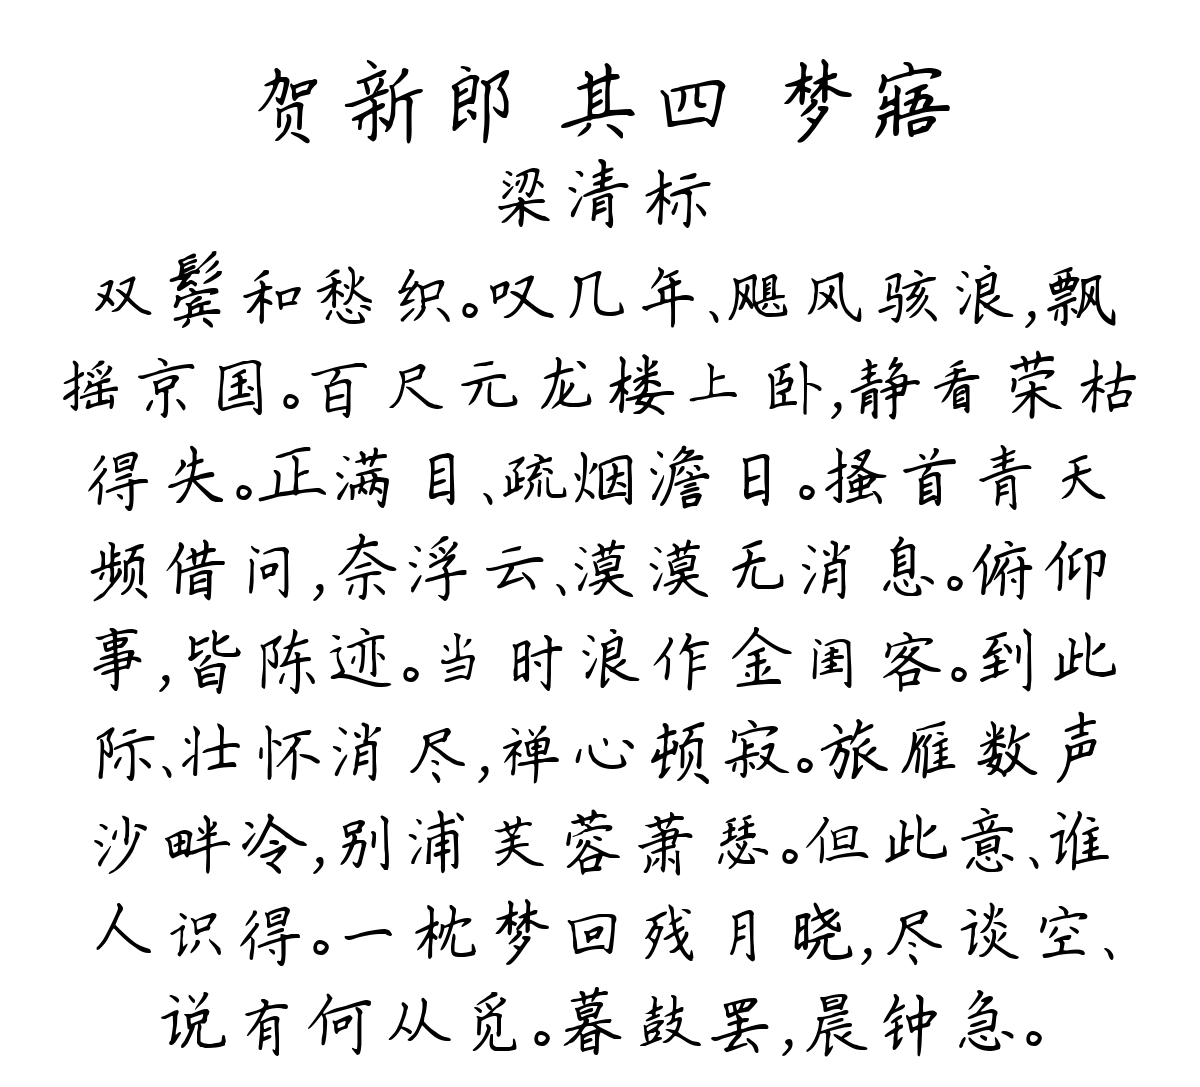 贺新郎 其四 梦寤
梁清标
双鬓和愁织。叹几年、飓风骇浪,飘
摇京国。百尺元龙楼上卧,静看荣枯
得失。正满目、疏烟澹日。搔首青天
频借问,奈浮云、漠漠无消息。俯仰
事,皆陈迹。当时浪作金闺客。到此
际、壮怀消尽,禅心顿寂。旅雁数声
沙畔冷,别浦芙蓉萧瑟。但此意、谁
人识得。一枕梦回残月晓,尽谈空、
说有何从觅。暮鼓罢,晨钟急。